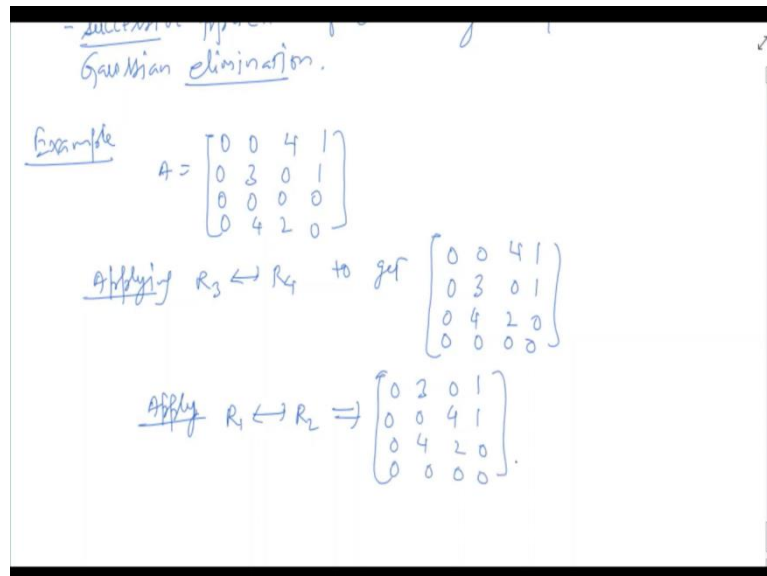 - successive
Gaussian elimination.
Example
A = [0 0 4 1
0 3 0 1
0 0 0 0
0 4 2 0]
Applying R3 ↔ R4 to get [0 0 4 1
0 3 0 1
0 4 2 0
0 0 0 0]
Apply R1 ↔ R2 ⇒ [0 3 0 1
0 0 4 1
0 4 2 0
0 0 0 0].